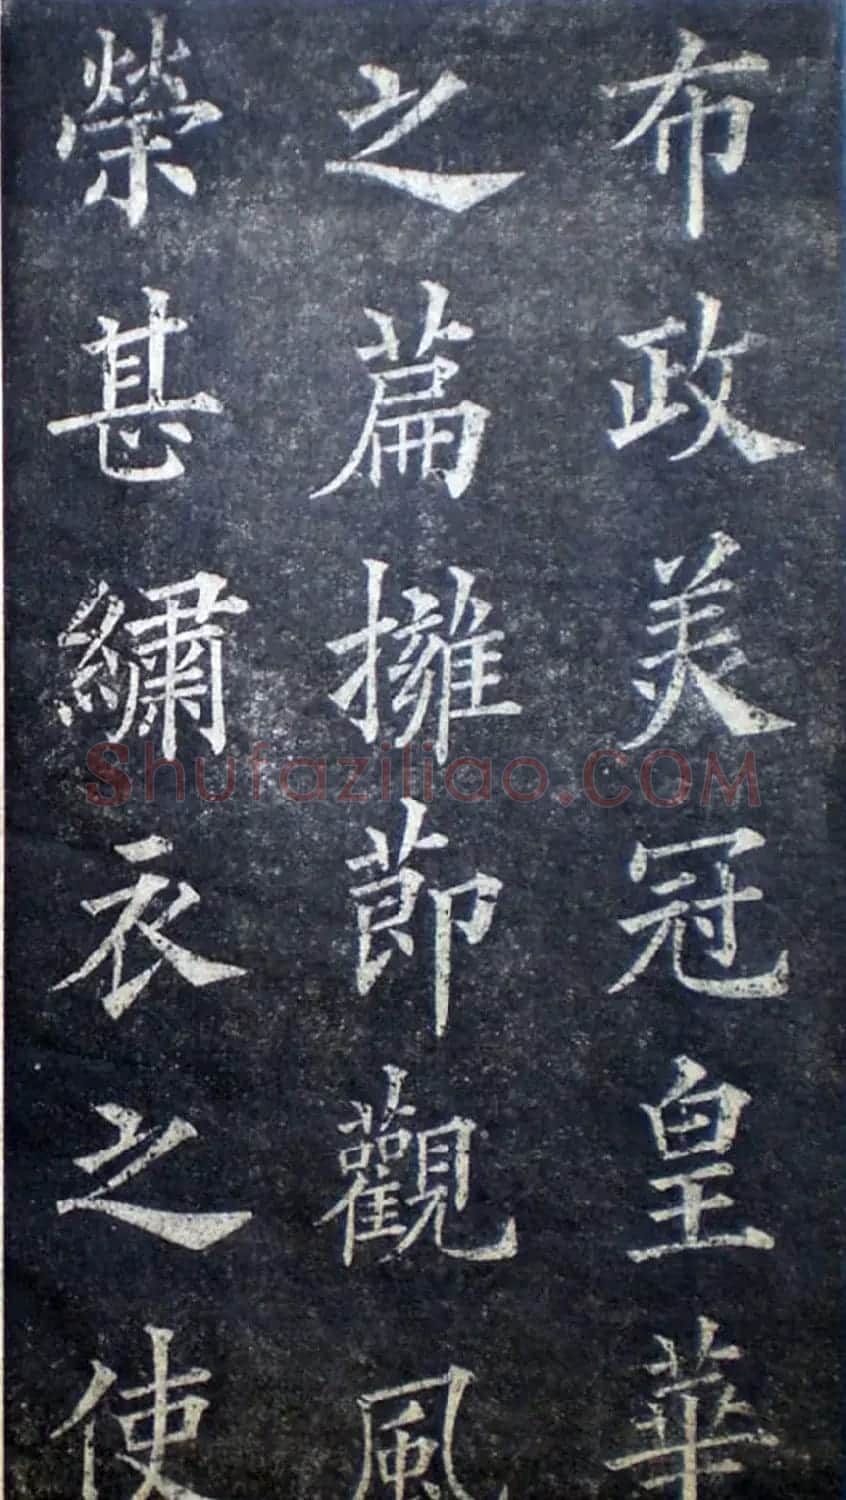 布政美冠皇華
之篇擁節觀風
榮甚繡衣之使
Shufaziliao.COM